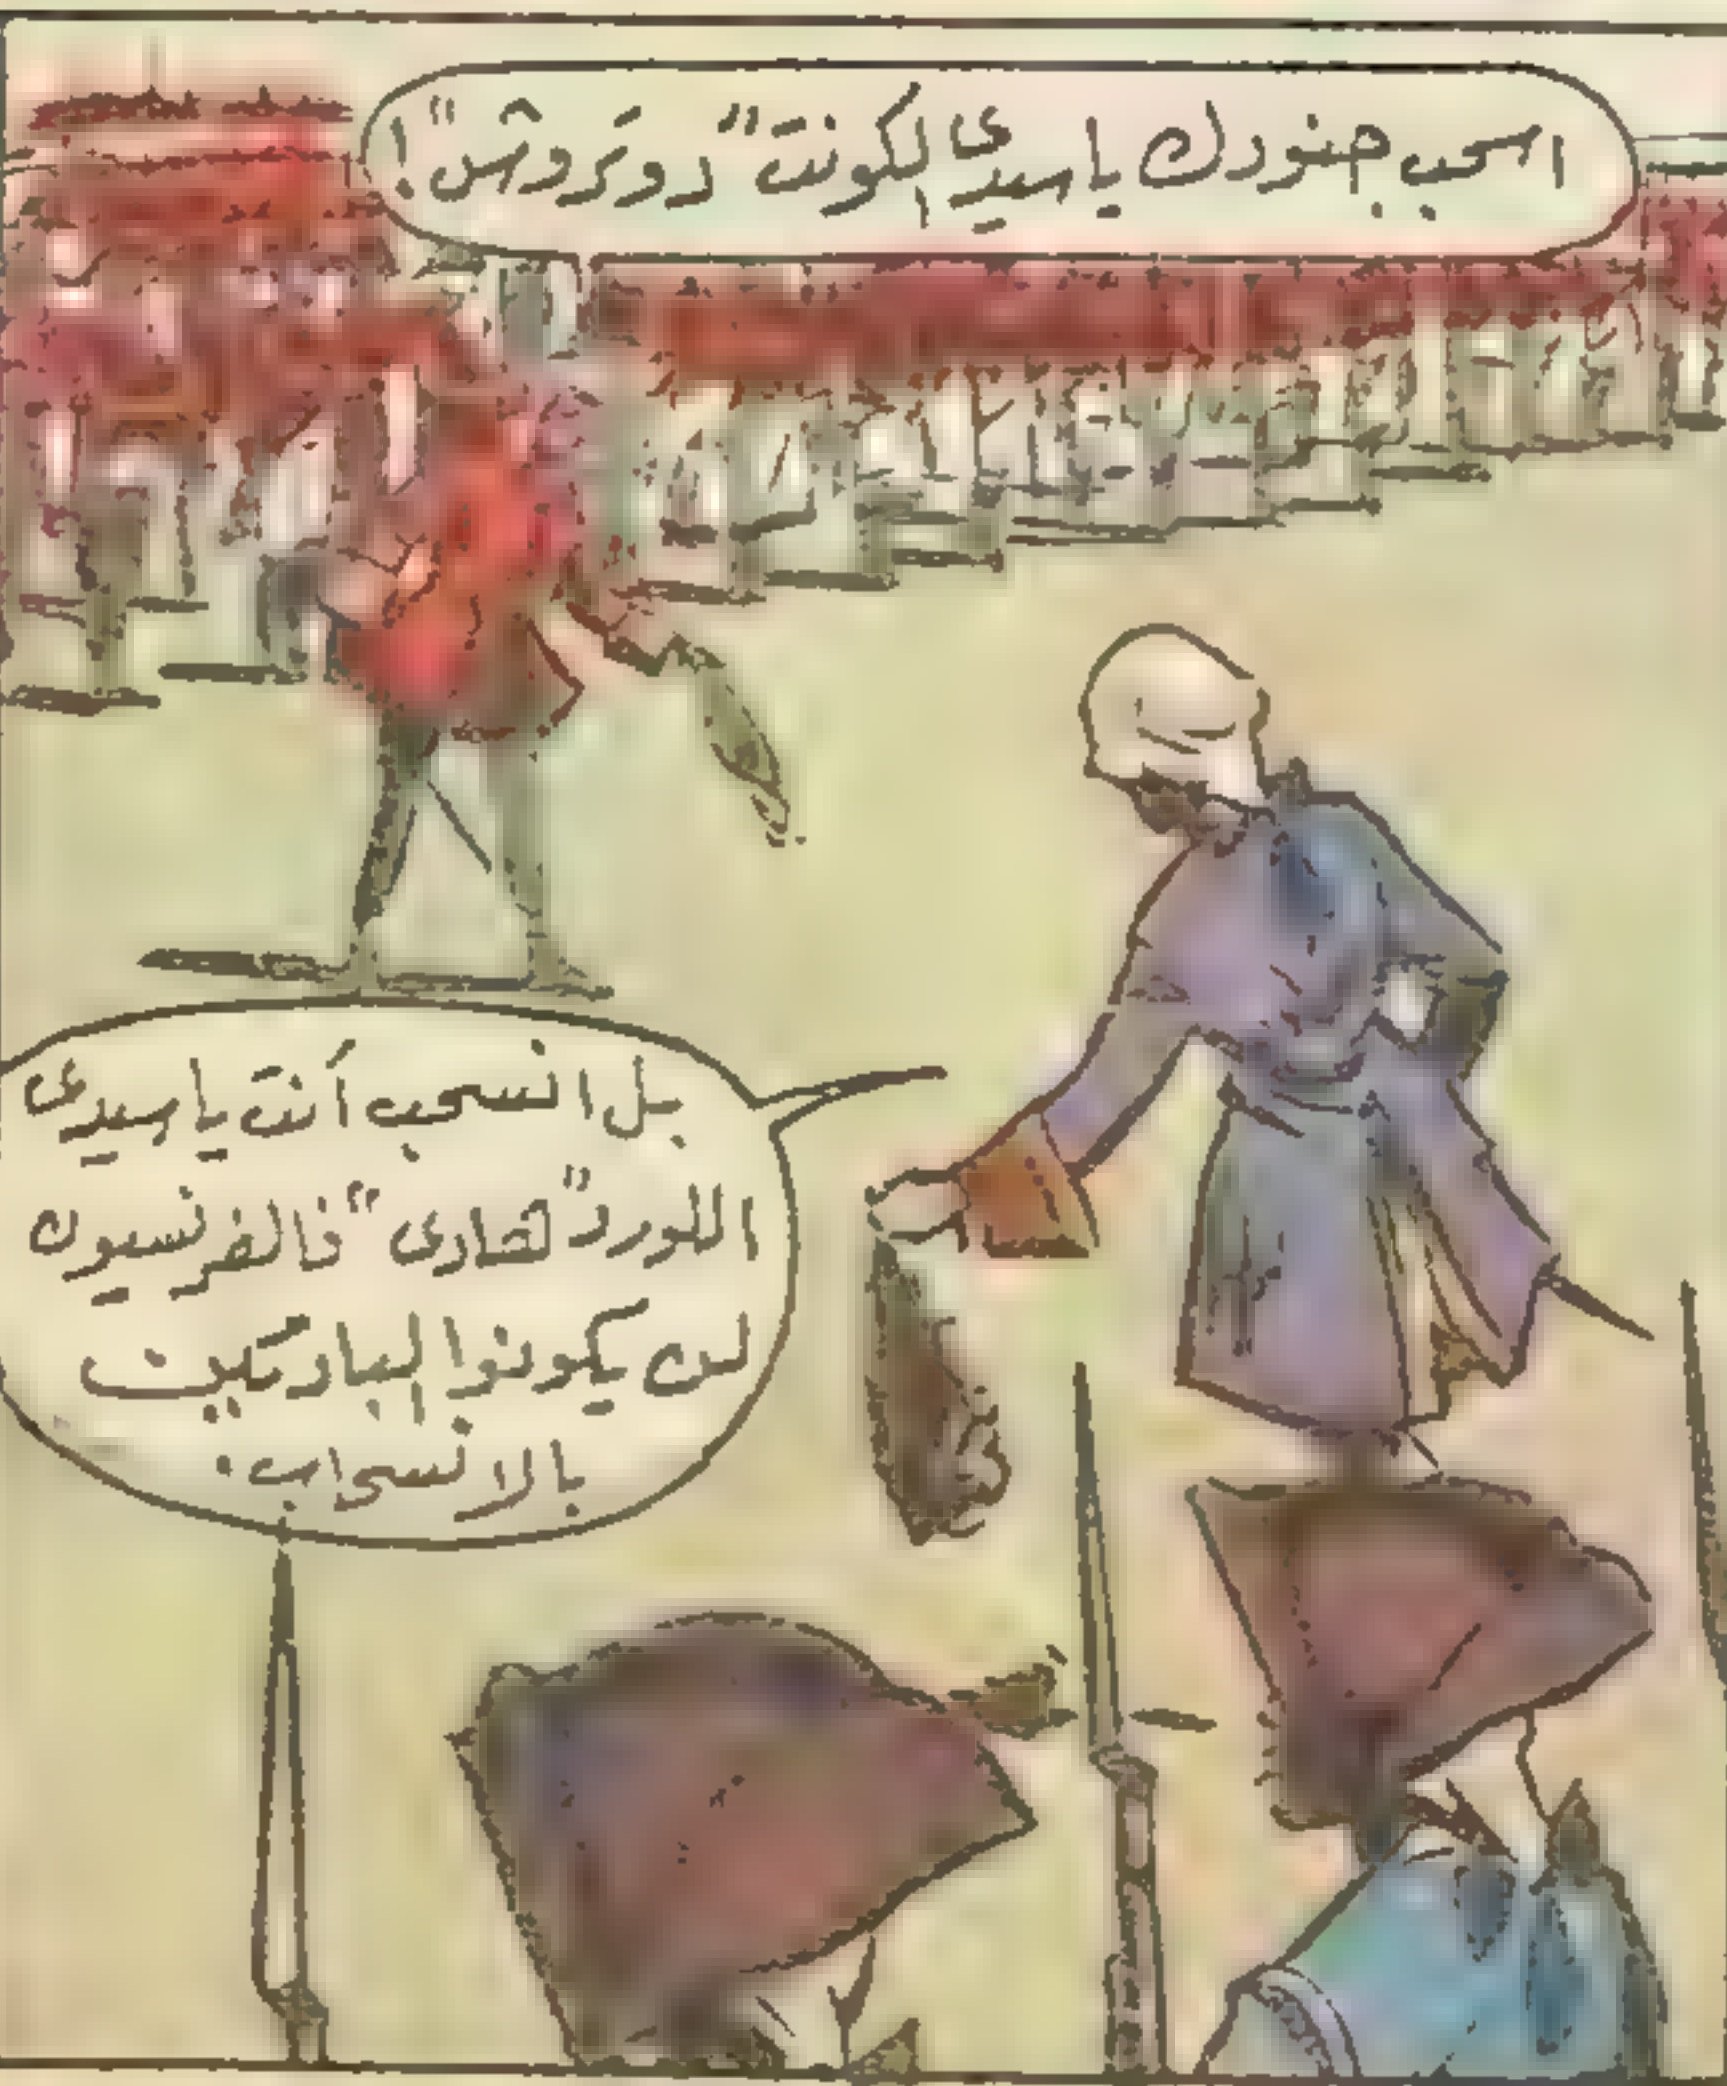 اسحب جنودك ياسيدى الكونت "دوتروش"!
بل انسحب أنت ياسيدى
اللورد "تشارى" فالفرنسيون
لن يكونوا البادئين
بالانسحاب.